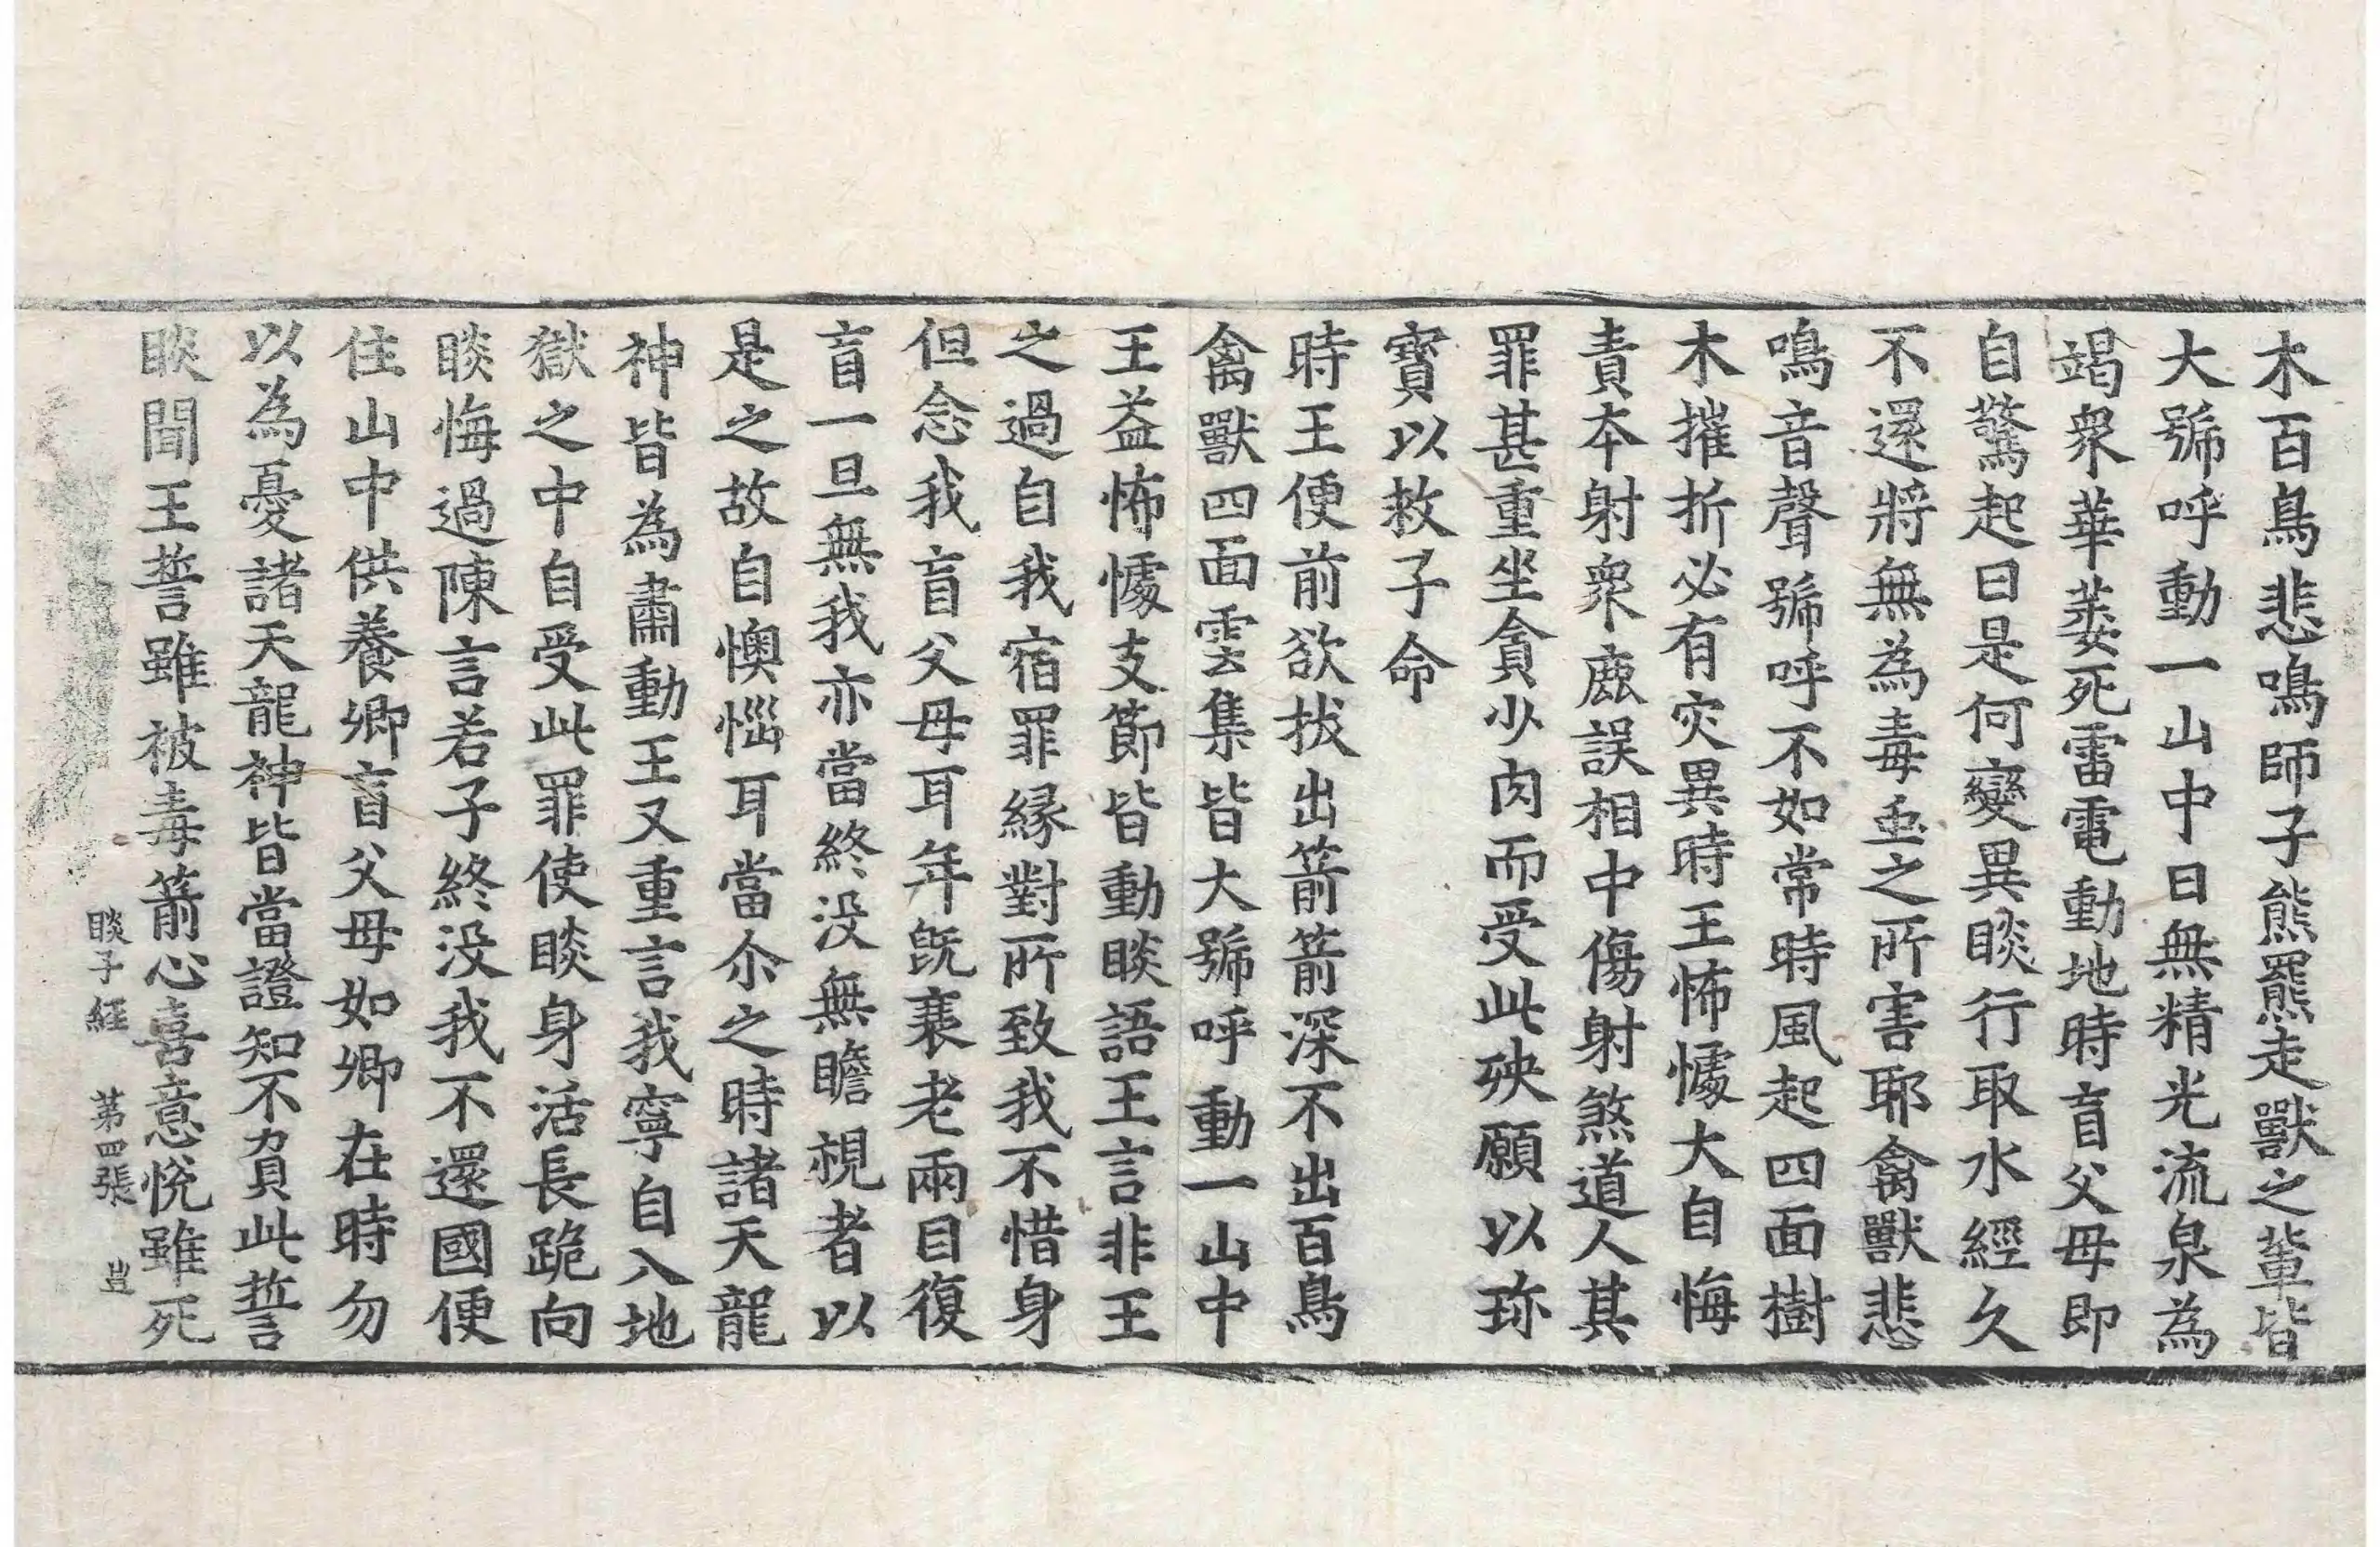 木百鳥悲鳴師子熊羆走獸之輩皆
大號呼動一山中日無精光流泉為
竭衆華萎死雷電動地時盲父母即
自驚起曰是何變異睒行取水經久
不還將無為毒䖝之所害耶禽獸悲
鳴音聲號呼不如常時風起四面樹
木摧折必有灾異時王怖懅大自悔
責本射衆鹿誤相中傷射煞道人其
罪甚重坐貪少肉而受此殃願以珎
寶以救子命
時王便前欲拔出箭箭深不出百鳥
禽獸四面雲集皆大號呼動一山中
王益怖懅支節皆動睒語王言非王
之過自我宿罪縁對所致我不惜身
但念我盲父母耳年旣衰老兩目復
盲一旦無我亦當終没無瞻視者以
是之故自懊惱耳當尒之時諸天龍
神皆為肅動王又重言我寧自入地
獄之中自受此罪使睒身活長跪向
睒悔過陳言若子終没我不還國便
住山中供養卿盲父母如卿在時勿
以為憂諸天龍神皆當證知不負此誓
睒聞王誓雖被毒箭心喜意悅雖死
睒子經 第四張 豈